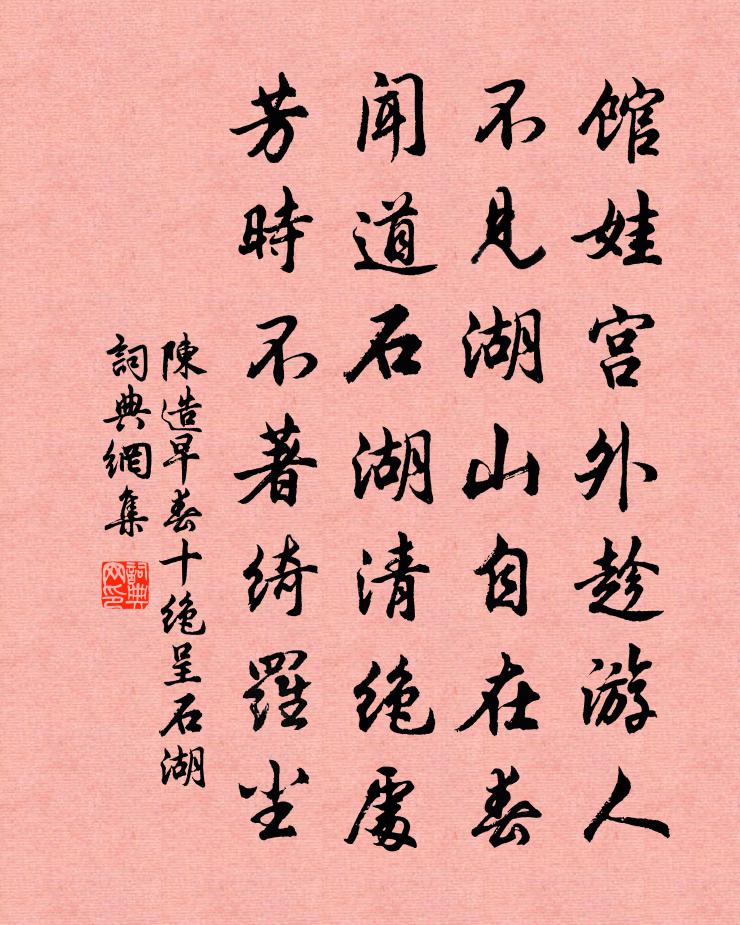 馆娃宫外趁游人
不见湖山自在春
闻道石湖清绝處
芳時不著绮羅尘
陳造早春十绝呈石湖
詞典網集
詞典网印